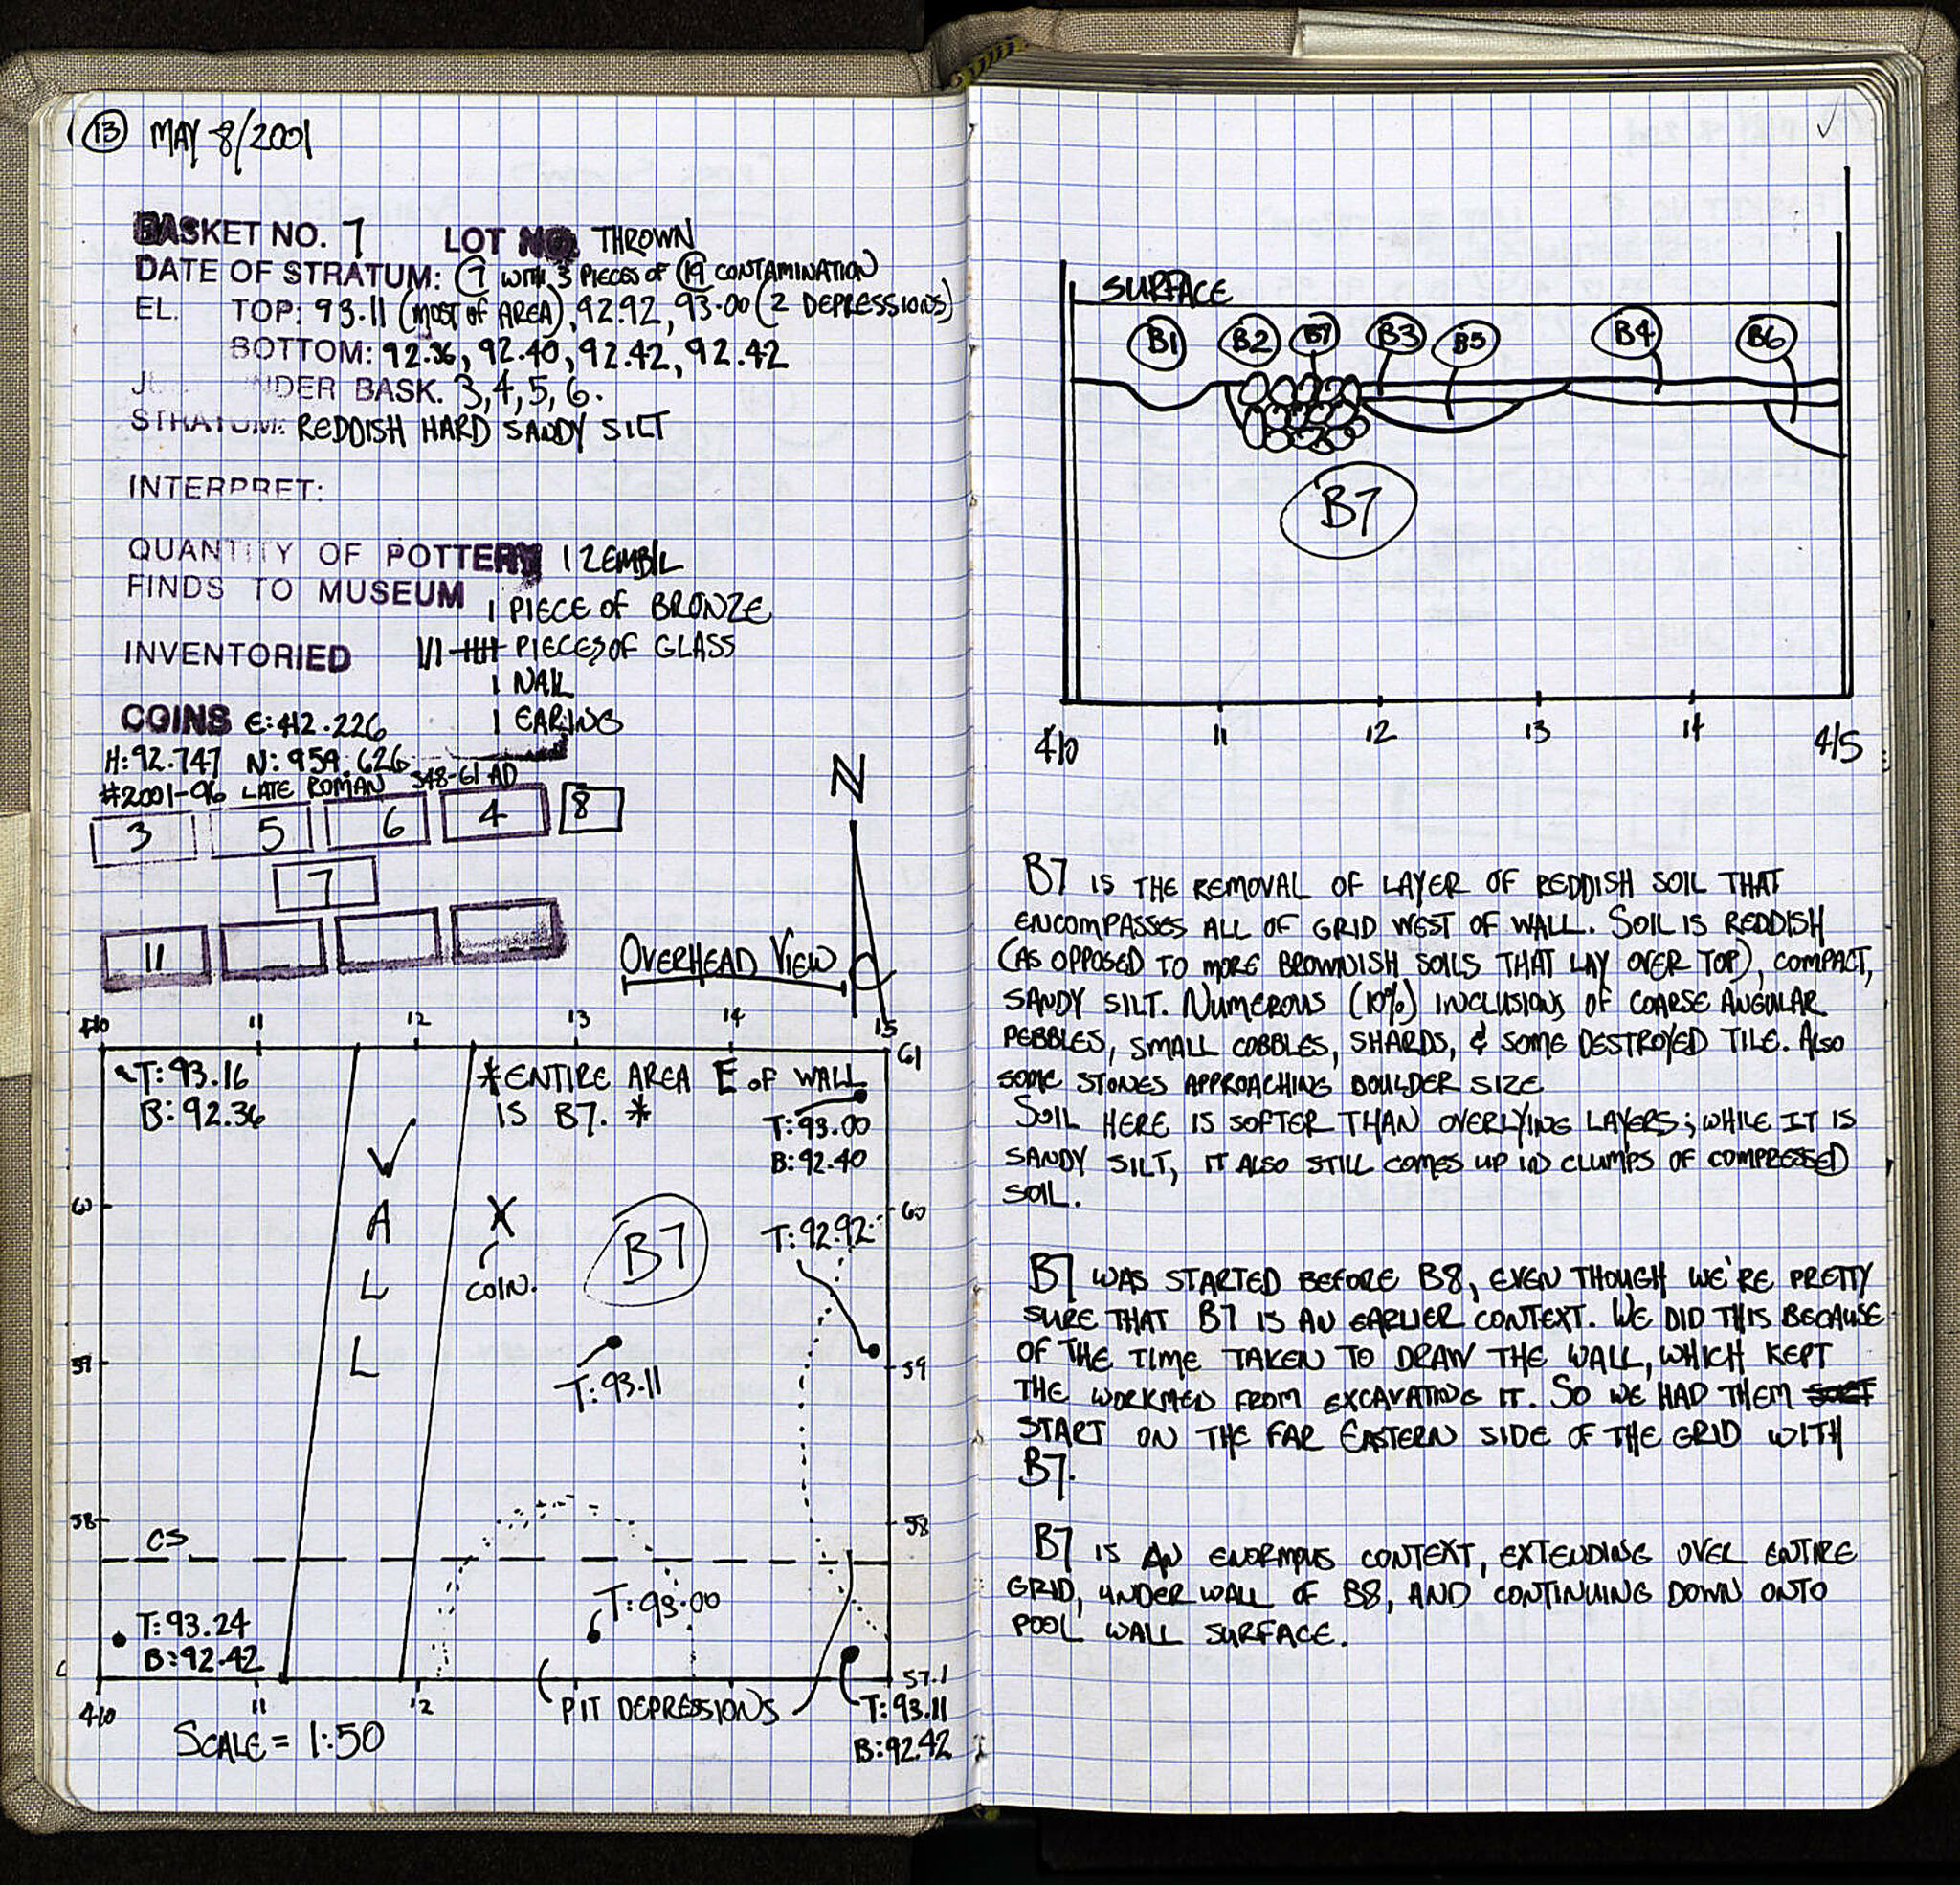 13 MAY 8/2001
BASKET NO. 7 LOT NO. THROWN
DATE OF STRATUM: 7 WITH 3 PIECES OF 19 CONTAMINATION
EL. TOP: 93.11 (MOST OF AREA), 92.92, 93.00 (2 DEPRESSIONS)
BOTTOM: 92.36, 92.40, 92.42, 92.42
UNDER BASK. 3,4,5,6.
STRATUM: REDDISH HARD SANDY SILT
INTERPRET:
QUANTITY OF POTTERY 1 ZEMBIL
FINDS TO MUSEUM
1 PIECE OF BRONZE
INVENTORIED
PIECES OF GLASS
1 NAIL
COINS E: 412.226
1 EARING
H: 92.747 N: 959.626
#2001-96 LATE ROMAN 348-61 AD
3 5 6 4 8
7
11
N
OVERHEAD VIEW
410 11 12 13 14 15
T: 93.16
B: 92.36
*ENTIRE AREA E OF WALL
IS B7. *
61
T: 93.00
B: 92.40
WALL
60
X
COIN.
B7
T: 92.92
60
59
T: 93.11
59
58
CS
58
T: 93.24
B: 92.42
T: 93.00
57.1
410 11 12
PIT DEPRESSIONS
T: 93.11
B: 92.42
SCALE = 1:50
SURFACE
B1 B2 B7 B3 B5 B4 B6
B7
410 11 12 13 14 415
B7 IS THE REMOVAL OF LAYER OF REDDISH SOIL THAT
ENCOMPASSES ALL OF GRID WEST OF WALL. SOIL IS REDDISH
(AS OPPOSED TO MORE BROWNISH SOILS THAT LAY OVER TOP), COMPACT,
SANDY SILT. NUMEROUS (10%) INCLUSIONS OF COARSE ANGULAR
PEBBLES, SMALL COBBLES, SHARDS, & SOME DESTROYED TILE. ALSO
SOME STONES APPROACHING BOULDER SIZE
SOIL HERE IS SOFTER THAN OVERLYING LAYERS; WHILE IT IS
SANDY SILT, IT ALSO STILL COMES UP IN CLUMPS OF COMPRESSED
SOIL.
B7 WAS STARTED BEFORE B8, EVEN THOUGH WE'RE PRETTY
SURE THAT B7 IS AN EARLIER CONTEXT. WE DID THIS BECAUSE
OF THE TIME TAKEN TO DRAW THE WALL, WHICH KEPT
THE WORKMEN FROM EXCAVATING IT. SO WE HAD THEM
START ON THE FAR EASTERN SIDE OF THE GRID WITH
B7.
B7 IS AN ENORMOUS CONTEXT, EXTENDING OVER ENTIRE
GRID, UNDER WALL OF B8, AND CONTINUING DOWN ONTO
POOL WALL SURFACE.